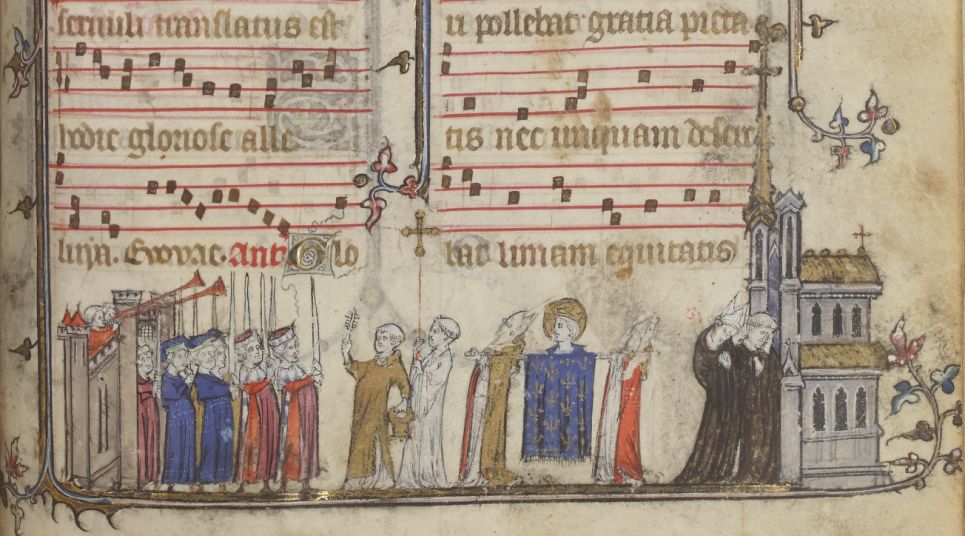 translatus est
hodie gloriose alle
luya. Euouae. Ant Glo
u pollebat gratia pieta
tis nec unquam desere
bat limam equitatis